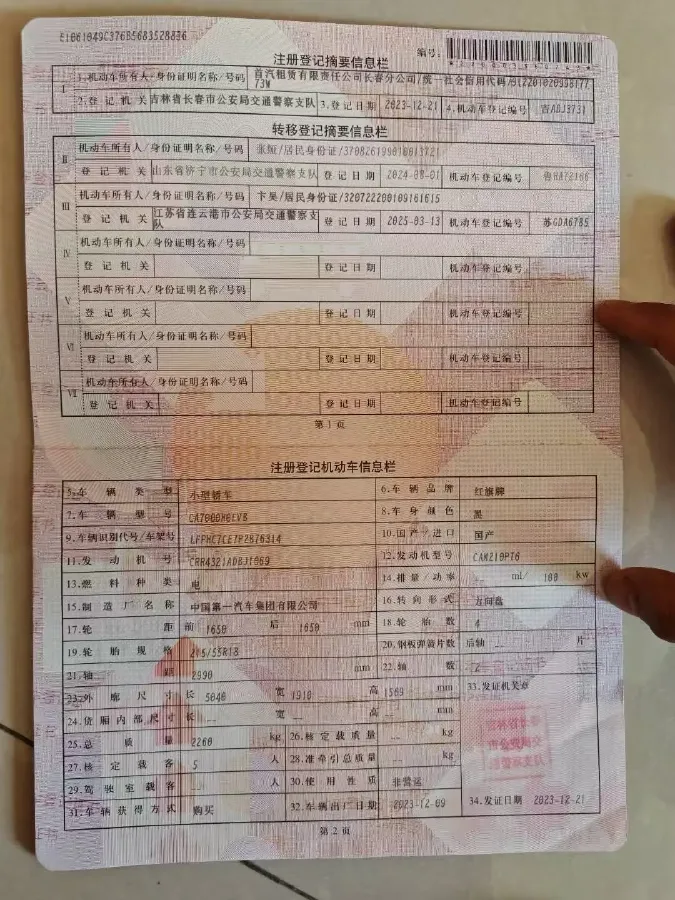 E1061049C37685683528836
编号:
注册登记摘要信息栏
I
1.机动车所有人/身份证明名称/号码 首汽租赁有限责任公司长春分公司/统一社会信用代码/
73W
2.登记机关 吉林省长春市公安局交通警察支队 3.登记日期 2023-12-21 4.机动车登记编号 吉ABJ3731
转移登记摘要信息栏
II
机动车所有人/身份证明名称/号码 /居民身份证/
登记机关 山东省济宁市公安局交通警察支队 登记日期 2024-08-01 机动车登记编号
III
机动车所有人/身份证明名称/号码 卞昊/居民身份证/320722200109161615
登记机关 江苏省连云港市公安局交通警察支
队 登记日期 2025-03-13 机动车登记编号 苏GDA6785
IV
机动车所有人/身份证明名称/号码
登记机关 登记日期 机动车登记编号
V
机动车所有人/身份证明名称/号码
登记机关 登记日期 机动车登记编号
VI
机动车所有人/身份证明名称/号码
登记机关 登记日期 机动车登记编号
VII
机动车所有人/身份证明名称/号码
登记机关 登记日期 机动车登记编号
第1页
注册登记机动车信息栏
5.车辆类型 小型轿车 6.车辆品牌 红旗牌
7.车辆型号 8.车身颜色 黑
9.车辆识别代号/车架号 10.国产/进口 国产
11.发动机号 12.发动机型号 CAM210PT6
13.燃料种类 电 14.排量/功率 -- ml/ 100 kw
15.制造厂名称 中国第一汽车集团有限公司 16.转向形式 方向盘
17.轮距 前 1650 后 1650 mm 18.轮胎数 4
19.轮胎规格 215/55R18 20.钢板弹簧片数 后轴 -- 片
21.轴距 2990 mm 22.轴数 2
23.外廓尺寸 长 5040 宽 1910 高 1569 mm 33.发证机关章
24.货厢内部尺寸 长 -- 宽 -- 高 -- mm
25.总质量 2260 kg 26.核定载质量 -- kg
27.核定载客 5 人 28.准牵引总质量 -- kg
29.驾驶室载客 -- 人 30.使用性质 非营运
31.车辆获得方式 购买 32.车辆出厂日期 2023-12-09 34.发证日期 2023-12-21
第2页